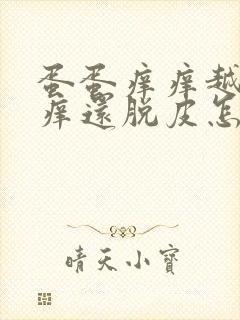 蛋蛋痒痒越
痒還脱皮怎
晴天小寶